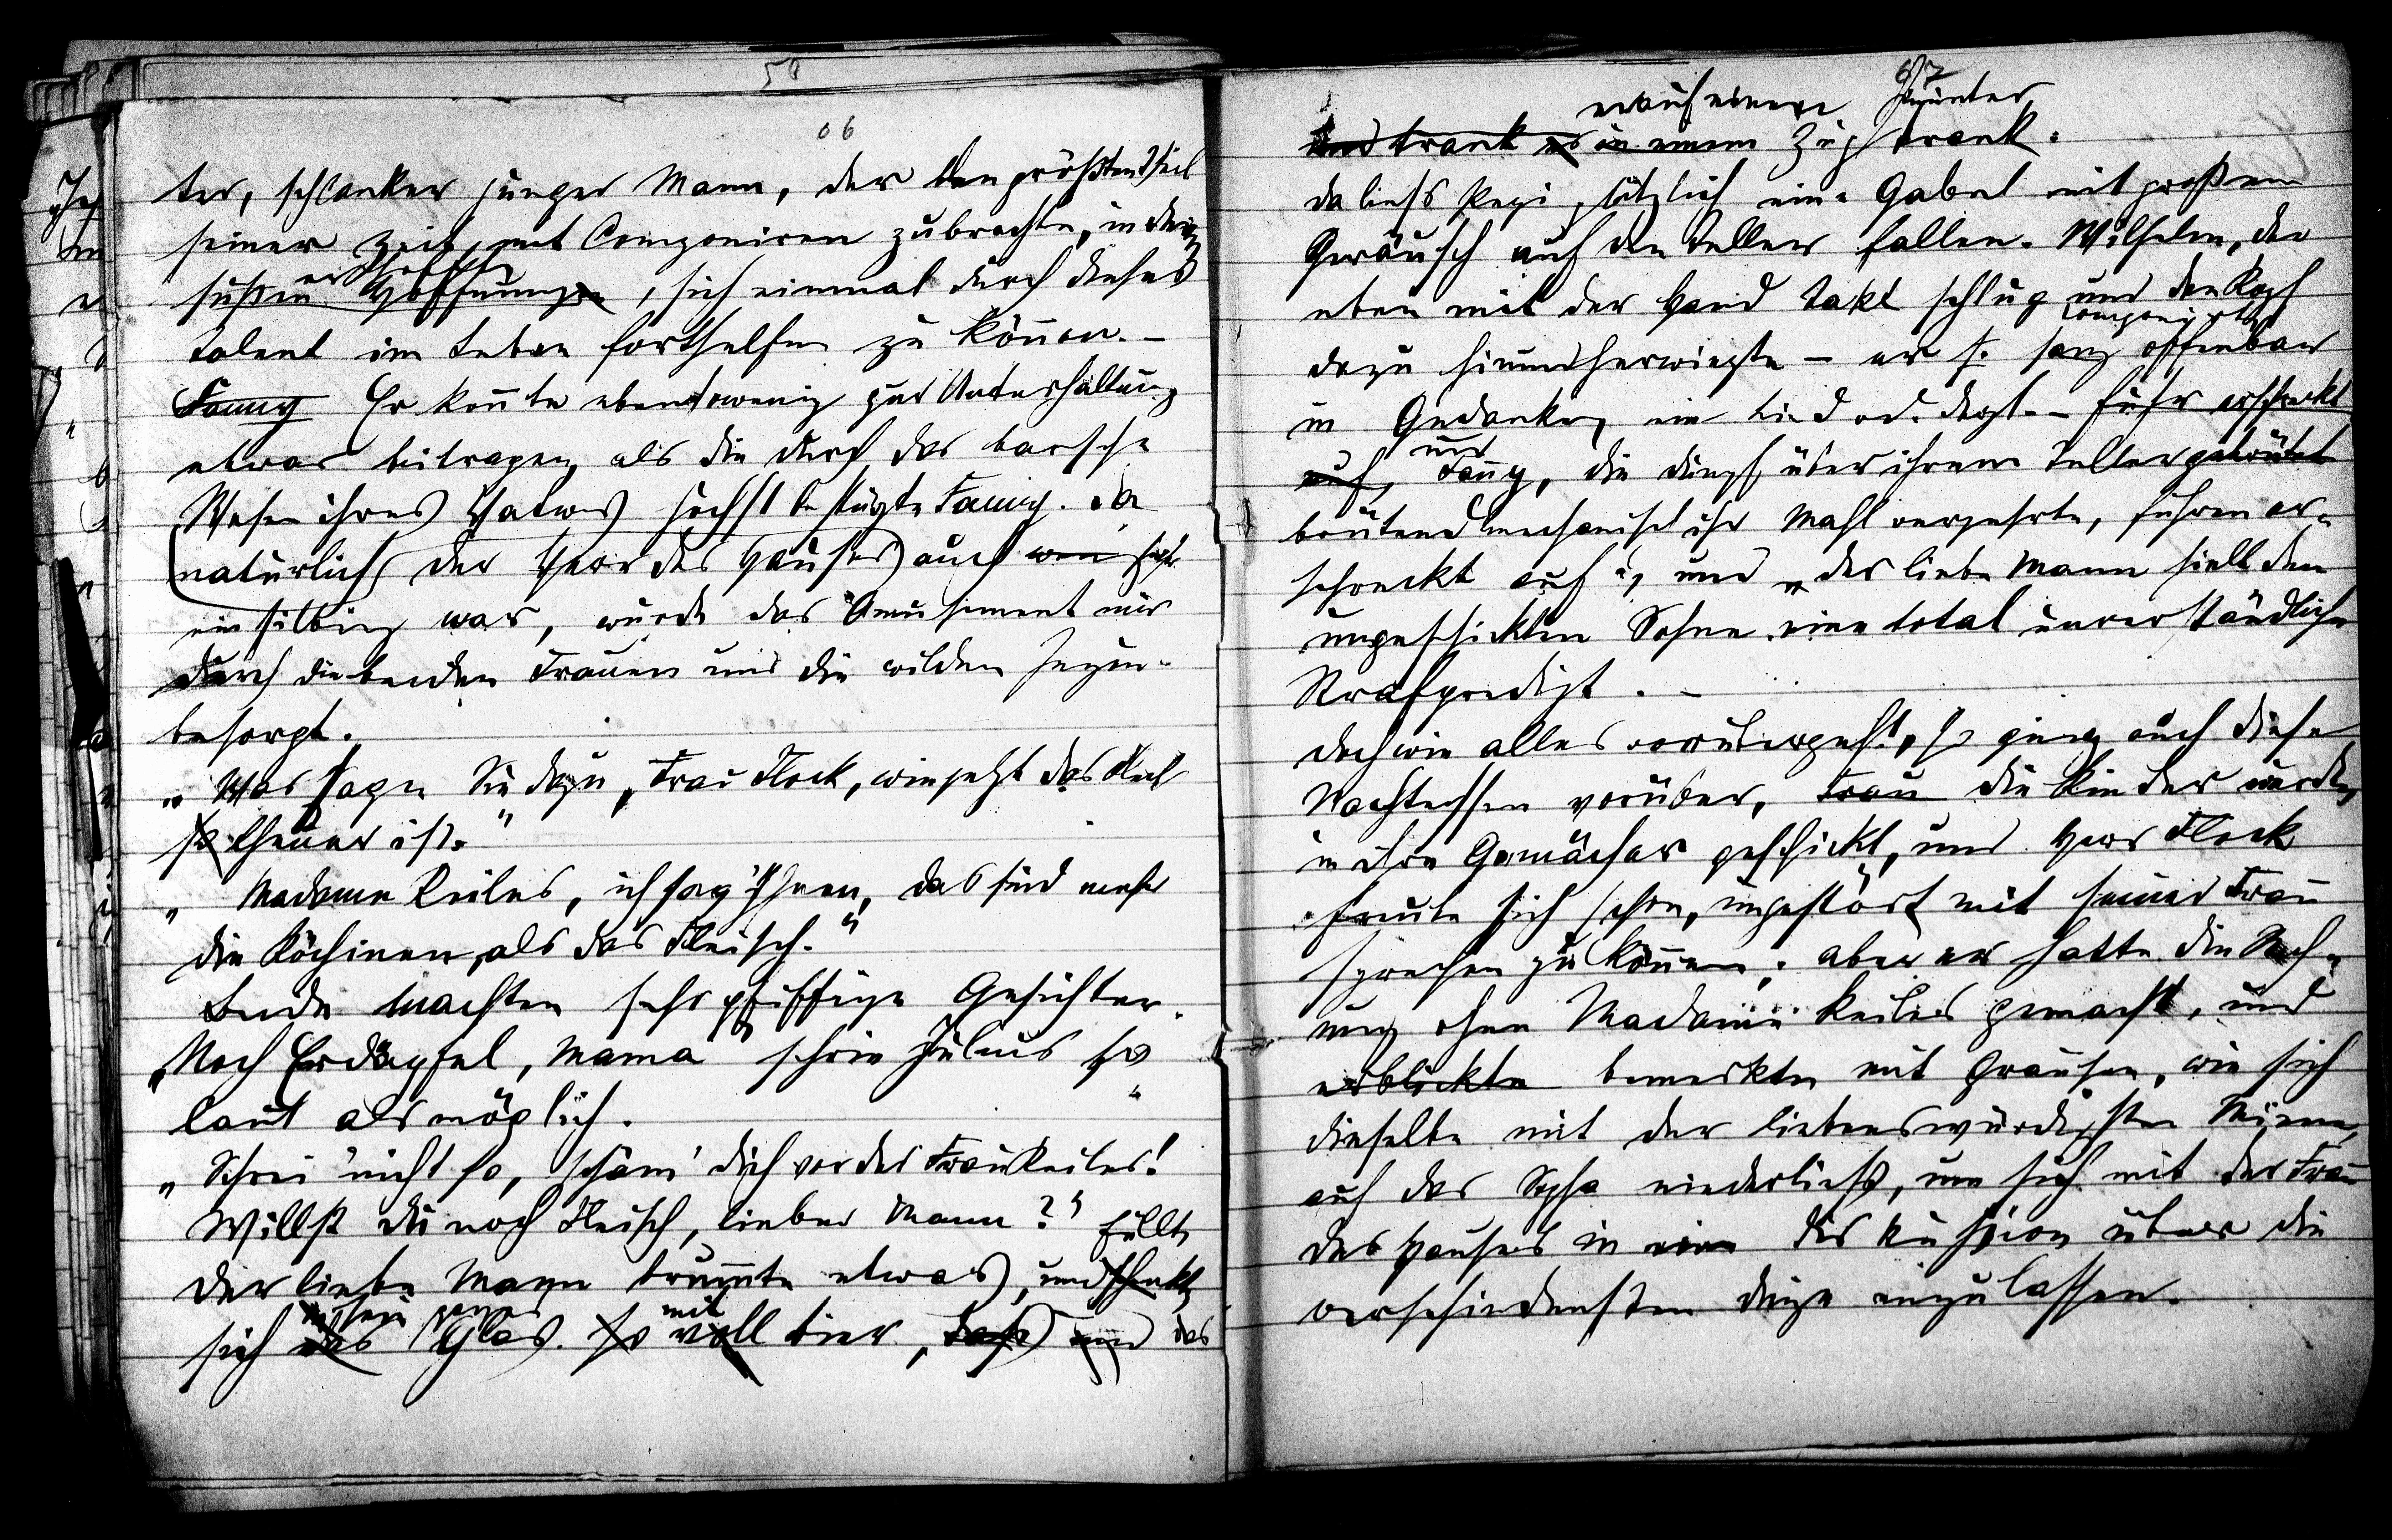 58
06
ter, schlanker junger Mann, der den größten Theil
seiner Zeit mit Componiren zubrachte, in der
süßen Hoffnungen, sich einmal durch dieses
Talent im Leben forthelfen zu können. –
Fanny Er konnte ebensowenig zur Unterhaltung
etwas beitragen, als die durch das barsche
Wesen ihres Vaters höchst bestürzte Fanny. Da
natürlich der Herr des Hauses auch sehr
einsilbig war, wurde das Amusement nur
durch die beiden Frauen und die wilden Jungen
besorgt.
„Was sagen Sie dazu, Frau Flock, wie jetzt das Fleisch
so theuer ist."
„Madame Keiles, ich sag' Ihnen, das sind mehr
die Köchinen, als das Fleisch."
Beide machten sehr pfiffige Gesichter.
„Noch Erdäpfel, Mama" schrie Julius so
laut als möglich.
„Schrei nicht so, schäm' dich vor der Frau Keiles!
Willst du noch Fleisch, lieber Mann?" füllte
Der liebe Mann brummte etwas, und schenkte
sein ganzes mit
sich das Glas so voll Bier, dass und das
67
er auf einem hinunter
und trank es in einem Zug trank.
Da liess Pepi plötzlich eine Gabel mit großem
Geräusch auf den Teller fallen. Wilhelm, der
eben mit der Hand Takt schlug und den Kopf
componirte
dazu hinundherwiegte – er s. sang offenbar
in Gedanken ein Lied od. dergl. – fuhr erschreckt
und
auf, Fanny, die dumpf über ihrem Teller gebrütet
brütend mechanisch ihr Mahl verzehrte, fuhren er-
schreckt auf, und „der liebe Mann hielt dem
ungeschickten Sohne eine total unverständliche
Strafpredigt. –
Doch wie alles vorübergeht, so ging auch diese
Nachtessen vorüber, Frau die Kinder wurden
in ihre Gemächer geschickt, und Herr Flock
freute sich schon, ungestört mit seiner Frau
sprechen zu können; aber er hatte die Rech-
nung ohne Madame Keiles gemacht, und
erblickte bemerkte mit Grausen, wie sich
dieselbe mit der liebenswürdigsten Miene
auf das Sopha niederliess, um sich mit der Frau
des Hauses in eine Diskussion über die
verschiedensten Dinge einzulassen.